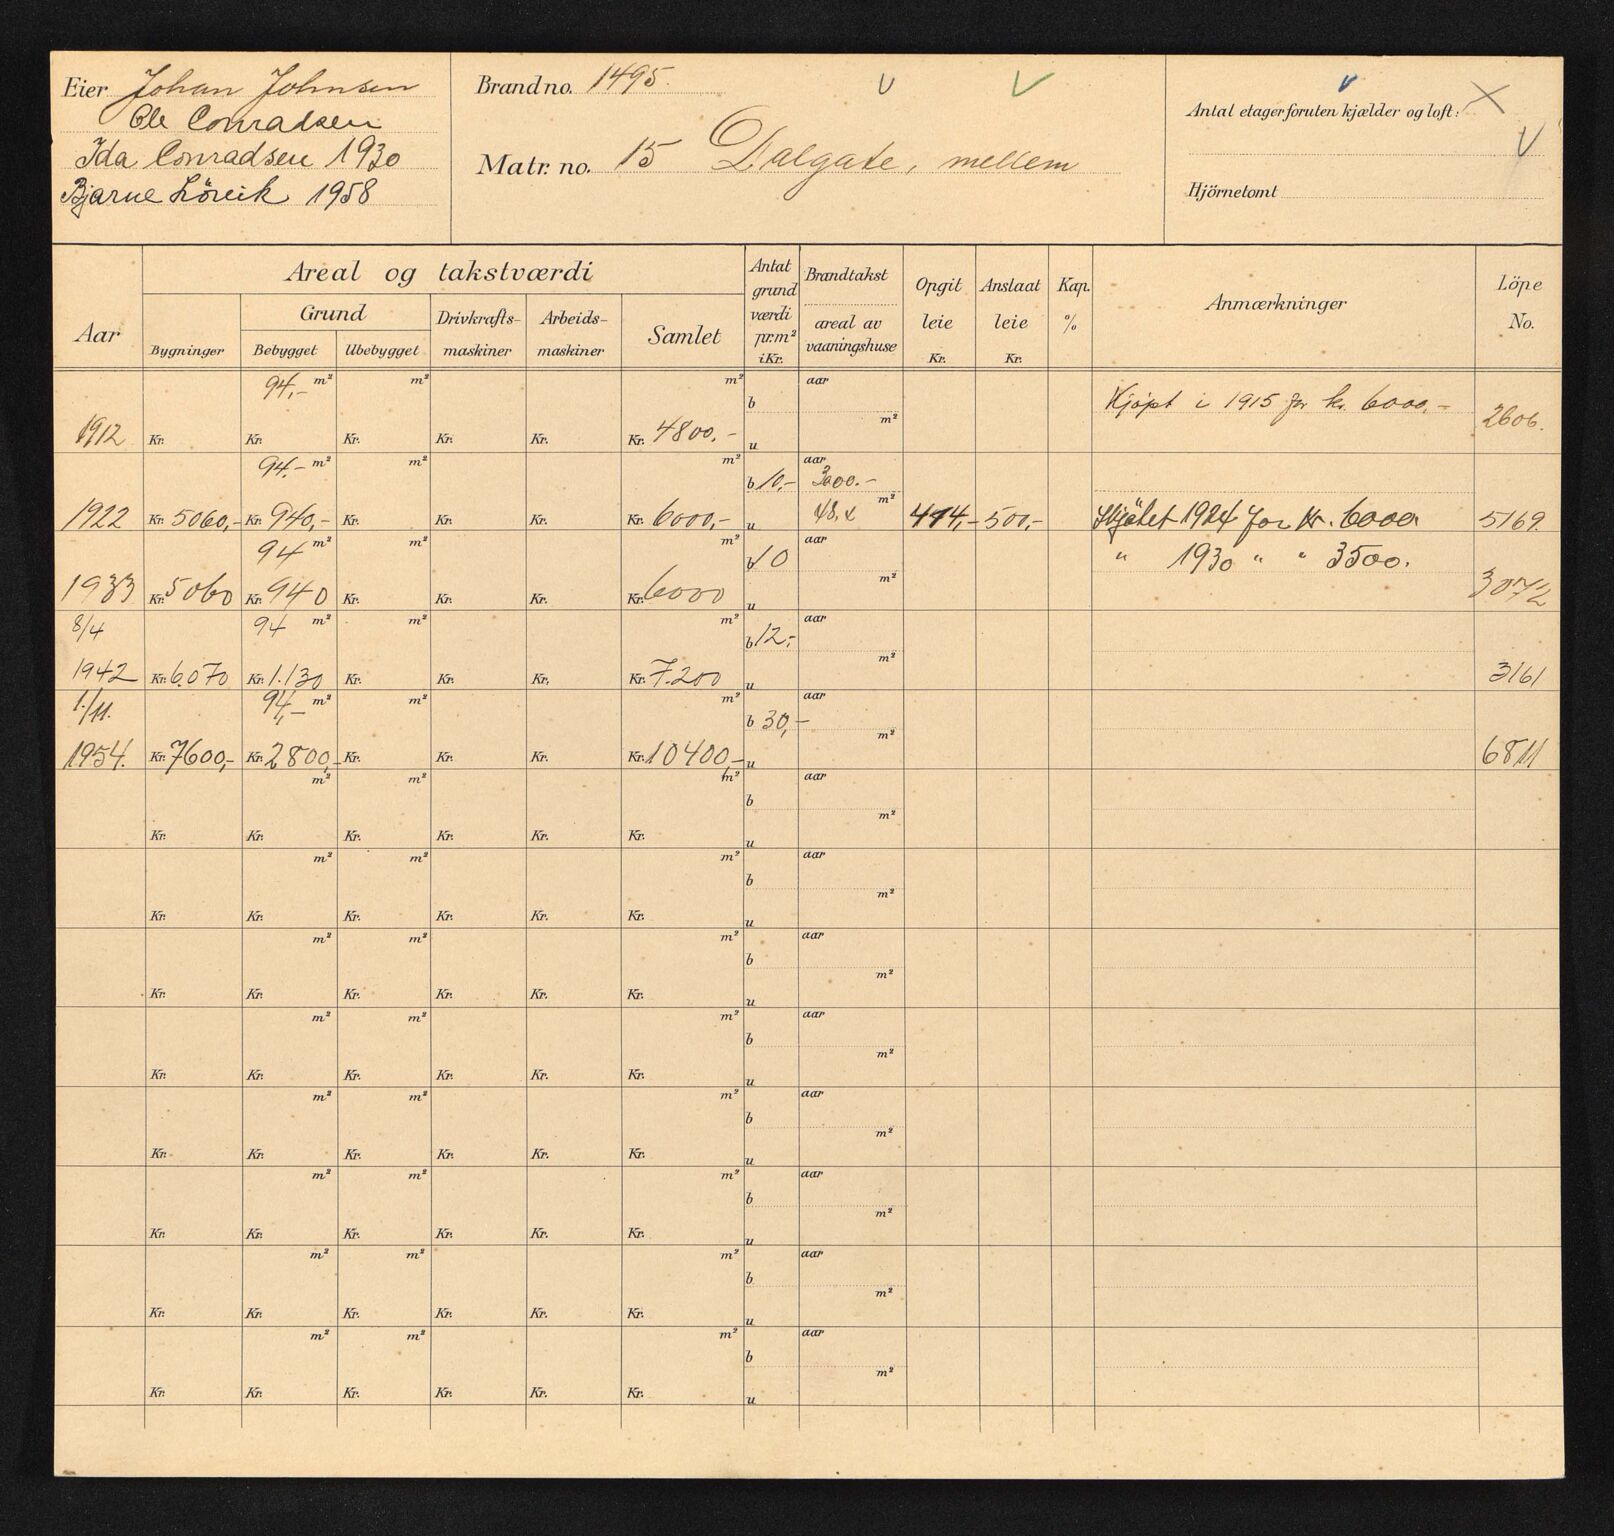 Eier Johan Johnsen
Ole Conradsen
Ida Conradsen 1930
Bjarne Lövik 1958
Brand no. 1495.
Matr. no. 15 Dalgate, mellem
Antal etager foruten kjælder og loft:
Hjörnetomt
Aar
Areal og takstværdi
Bygninger
Grund
Bebygget Ubebygget
Drivkrafts-maskiner
Arbeids-maskiner
Samlet
Antat grund værdi pr. m² i Kr.
Brandtakst
areal av vaaningshuse
Opgit leie Kr.
Anslaat leie Kr.
Kap. %
Anmærkninger
Löpe No.
94,- m² m² m² aar
b Kjöpt i 1915 for kr. 6000,-
1912 Kr. Kr. Kr. Kr. Kr. Kr. 4800,- u m² 2606.
94.- m² m² m² aar
b 10,- 3000.-
1922 Kr. 5060,- Kr. 940,- Kr. Kr. Kr. Kr. 6000,- u 48, m² 500,- Skjötet 1924 for Kr. 6000. 5169.
94 m² m² m² b 10 aar " 1930 " " 3500.
1933 Kr. 5060 Kr. 940 Kr. Kr. Kr. Kr. 6000 u m² 3072
8/4 94 m² m² m² b 12,- aar
1942 Kr. 6070 Kr. 1.130 Kr. Kr. Kr. Kr. 7.200 u m² 3161
1./11. 94,- m² m² m² b 30,- aar
1954. Kr. 7600,- Kr. 2800,- Kr. Kr. Kr. Kr. 10400,- u m² 6811
m² m² m² b aar
Kr. Kr. Kr. Kr. Kr. Kr. u m²
m² m² m² b aar
Kr. Kr. Kr. Kr. Kr. Kr. u m²
m² m² m² b aar
Kr. Kr. Kr. Kr. Kr. Kr. u m²
m² m² m² b aar
Kr. Kr. Kr. Kr. Kr. Kr. u m²
m² m² m² b aar
Kr. Kr. Kr. Kr. Kr. Kr. u m²
m² m² m² b aar
Kr. Kr. Kr. Kr. Kr. Kr. u m²
m² m² m² b aar
Kr. Kr. Kr. Kr. Kr. Kr. u m²
m² m² m² b aar
Kr. Kr. Kr. Kr. Kr. Kr. u m²